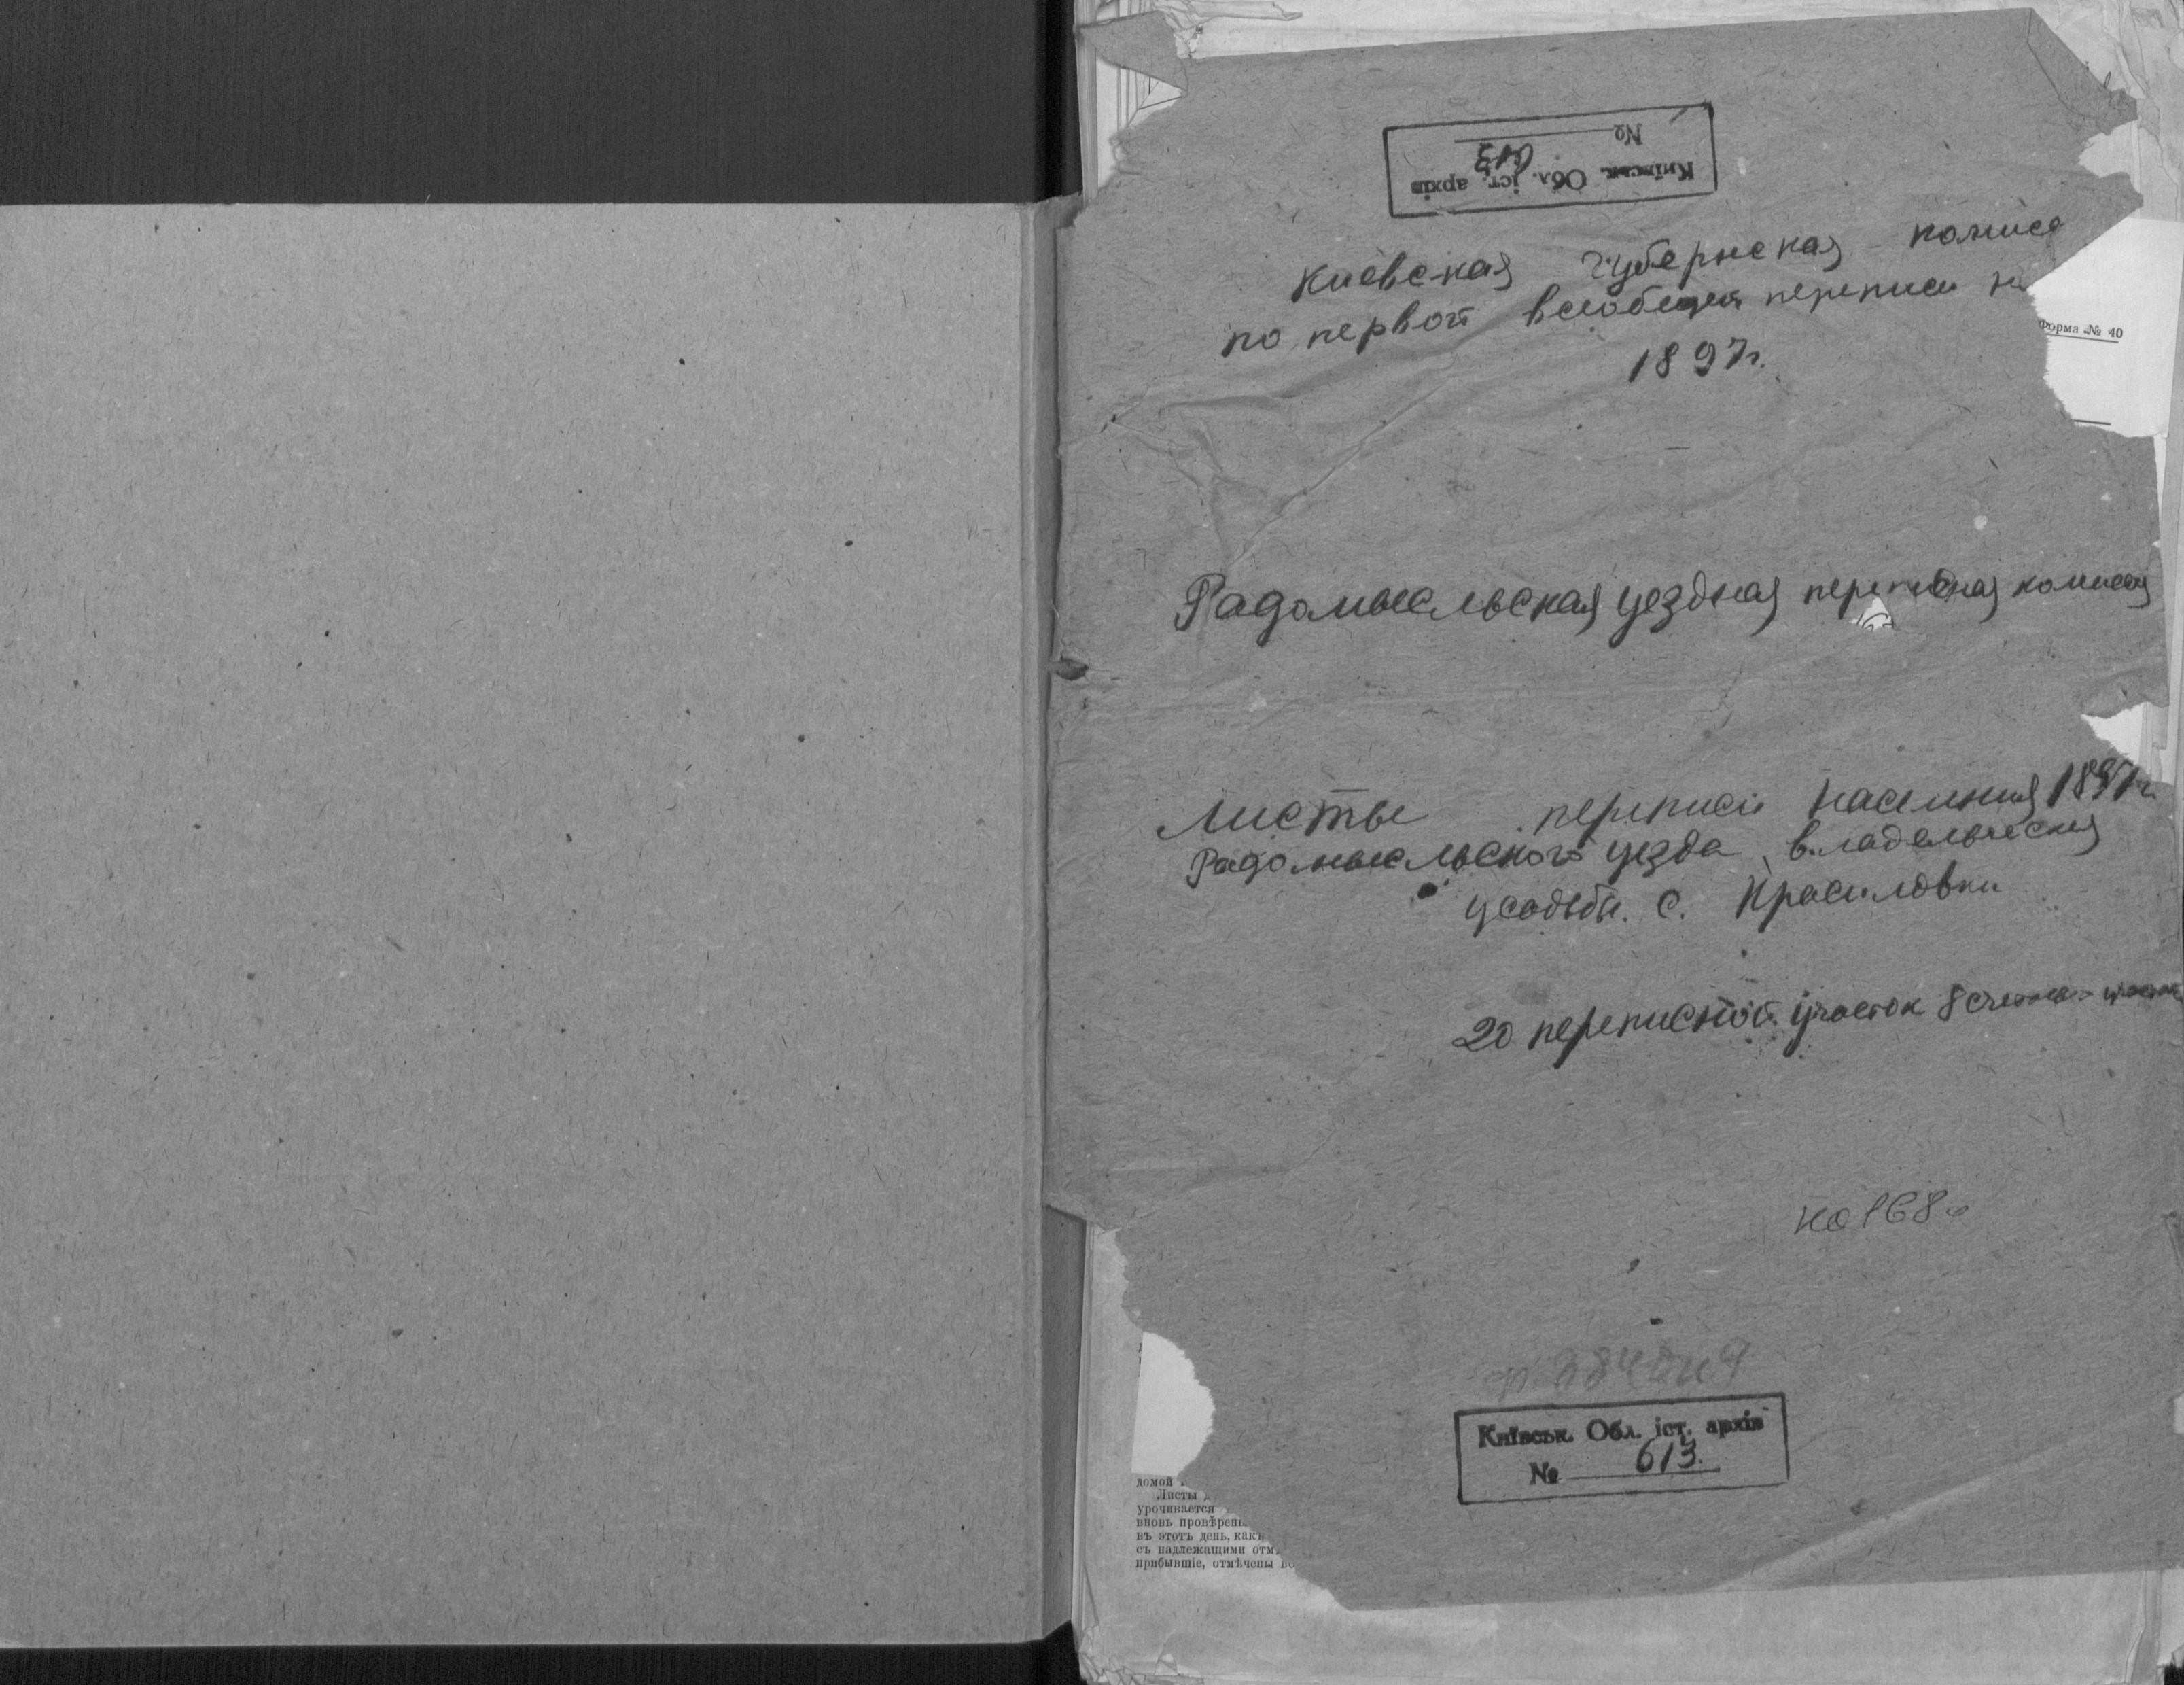 Київськ. Обл. іст. архів
№ 613
Киевская Губернская комисс
по первой всеобщей переписи н
1897г.
Форма № 40
Радомысльская уездная переписная комиссия
Листы переписи населения 1897г.
Радомысльского уезда, владельческия
усадьбы. с. Красиловки
20 переписной участок 8 счетный участок
на 168
Київськ. Обл. іст. архів
№ 613.
домой
Листы д
урочивается
вновь провѣрены
въ этотъ день, какъ
съ надлежащими отм
прибывшіе, отмѣчены во